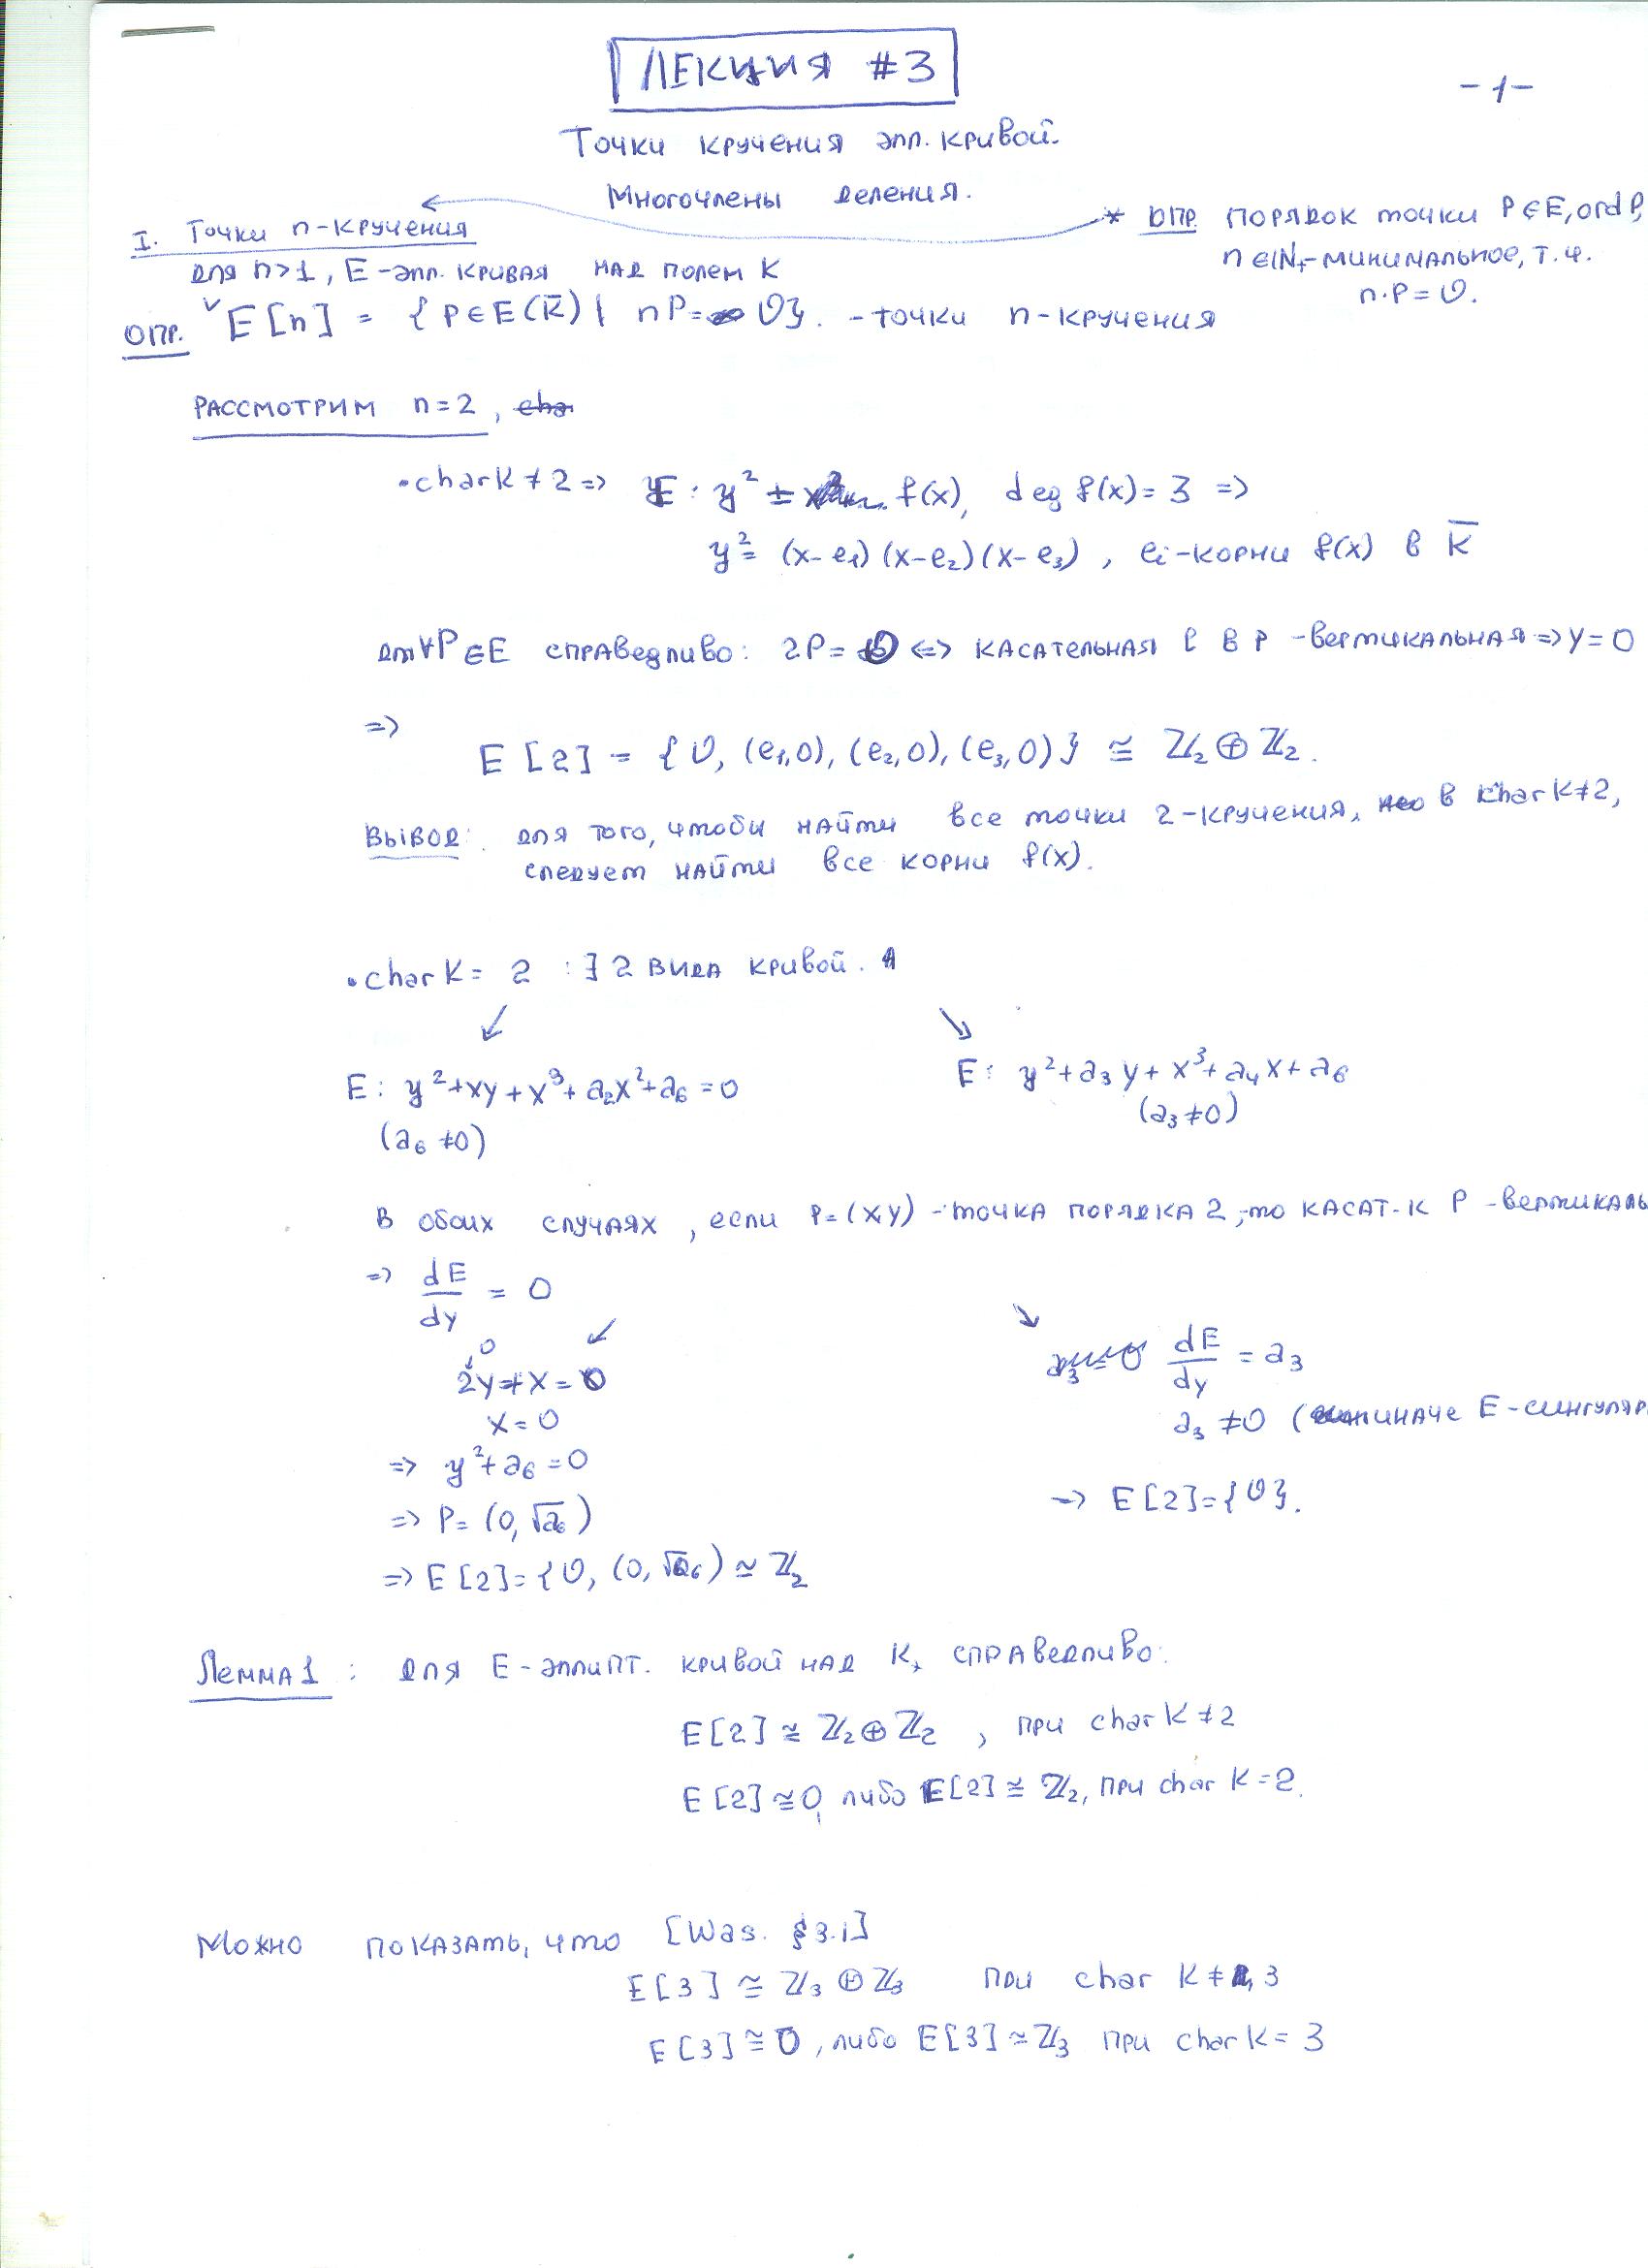 ЛЕКЦИЯ #3
- 1 -
Точки кручения элл. кривой.
Многочлены деления.
* ОПР. порядок точки P∈E, ord P,
n∈ℕ₊ - минимальное, т.ч.
n·P = O.
I. Точки n-кручения
для n>1, E - элл. кривая над полем K
ОПР. E[n] = {P∈E(K̄) | nP = O}. - точки n-кручения
Рассмотрим n=2,
• char K ≠ 2 => E: y² = f(x), deg f(x) = 3 =>
y² = (x-e₁)(x-e₂)(x-e₃), eᵢ - корни f(x) в K̄
для ∀P∈E справедливо: 2P = O <=> касательная l в P - вертикальная => y=0
=>
E[2] = {O, (e₁,0), (e₂,0), (e₃,0)} ≅ ℤ₂ ⊕ ℤ₂.
Вывод: для того, чтобы найти все точки 2-кручения, в char K≠2,
следует найти все корни f(x).
• char K = 2 : ∃ 2 вида кривой.
↙ ↘
E: y²+xy+x³+a₂x²+a₆=0
(a₆ ≠0)
E: y²+a₃y+x³+a₄x+a₆
(a₃≠0)
В обоих случаях, если P=(x,y) - точка порядка 2, то касат. к P - вертикаль
=> dE/dy = 0
↙ ↘
0
2y+x=0
x=0
=> y²+a₆=0
=> P=(0,√a₆)
=> E[2]={O, (0,√a₆) ≃ ℤ₂
dE/dy = a₃
a₃ ≠0 (иначе E - сингуляр
=> E[2]={O}.
Лемма 1 : для E - эллипт. кривой над K, справедливо:
E[2] ≅ ℤ₂⊕ℤ₂ , при char K≠2
E[2]≅0, либо E[2] ≅ ℤ₂, при char K=2.
Можно показать, что [Was. §3.1]
E[3] ≃ ℤ₃ ⊕ ℤ₃ при char K ≠ 3
E[3] ≅ 0, либо E[3] ≃ ℤ₃ при char K = 3